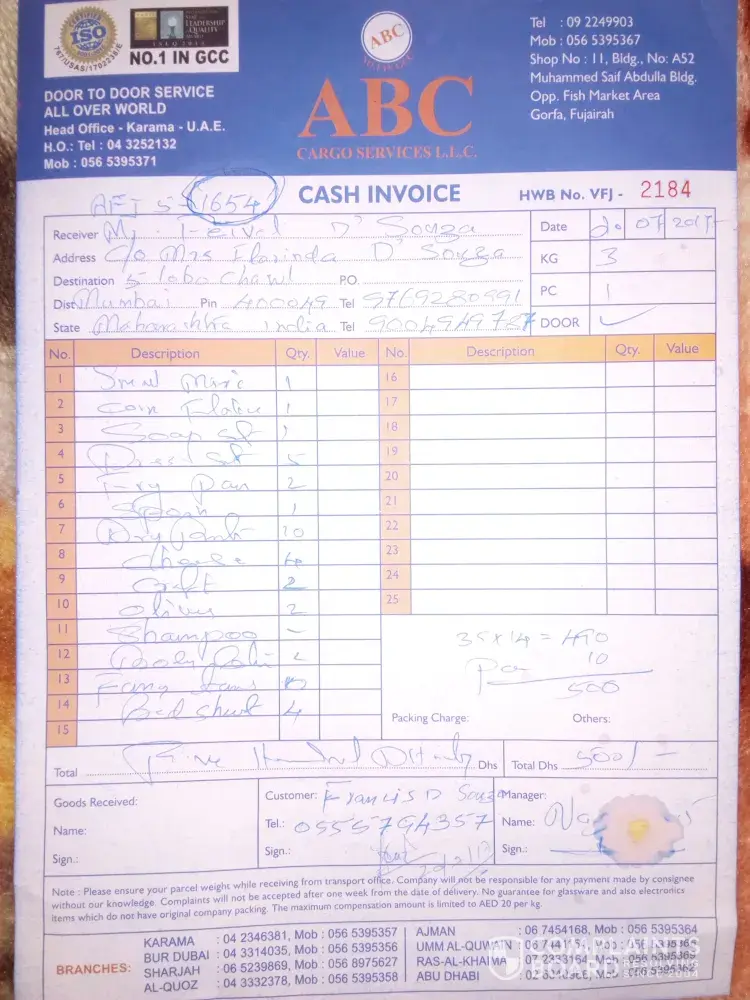 CERTIFIED
ISO
767/USAS/1702235/E
LEADERSHIP
QUALITY
NO.1 IN GCC
DOOR TO DOOR SERVICE
ALL OVER WORLD
Head Office - Karama - U.A.E.
H.O.: Tel : 04 3252132
Mob : 056 5395371
ABC
ABC
CARGO SERVICES L.L.C.
Tel : 09 2249903
Mob : 056 5395367
Shop No : 11, Bldg., No: A52
Muhammed Saif Abdulla Bldg.
Opp. Fish Market Area
Gorfa, Fujairah
AFJ 5- 1654
CASH INVOICE
HWB No. VFJ - 2184
Receiver Mr. D' Souza
Address C/o Mrs Florinda D' Souza
Destination 5 lobo chawl P.O.
Dist Mumbai Pin 400049 Tel 9769280991
State Maharashtra India Tel 9004949787
Date 20 07 2017
KG 3
PC 1
DOOR ✓
No. Description Qty. Value No. Description Qty. Value
1 1 16
2 1 17
3 Soap 18
4 5 19
5 Fry pan 2 20
6 1 21
7 10 22
8 4 23
9 2 24
10 Olives 2 25
11 Shampoo -
12
13
14 Bed sheet 4
15
35 x 14 = 490
10
500
Packing Charge: Others:
Total Five Hundred Dhs Total Dhs 500/-
Goods Received:
Name:
Sign.:
Customer: Francis D Souza
Tel.: 0555794357
Sign.:
Manager:
Name:
Sign.:
Note : Please ensure your parcel weight while receiving from transport office. Company will not be responsible for any payment made by consignee
without our knowledge. Complaints will not be accepted after one week from the date of delivery. No guarantee for glassware and also electronics
items which do not have original company packing. The maximum compensation amount is limited to AED 20 per kg.
BRANCHES:
KARAMA : 04 2346381, Mob : 056 5395357
BUR DUBAI : 04 3314035, Mob : 056 5395356
SHARJAH : 06 5239869, Mob : 056 8975627
AL-QUOZ : 04 3332378, Mob : 056 5395358
AJMAN : 06 7454168, Mob : 056 5395364
UMM AL-QUWAIN
RAS-AL-KHAIMA
ABU DHABI
COMPLAINTS
BOARD
RESOLVING
SINCE 2004